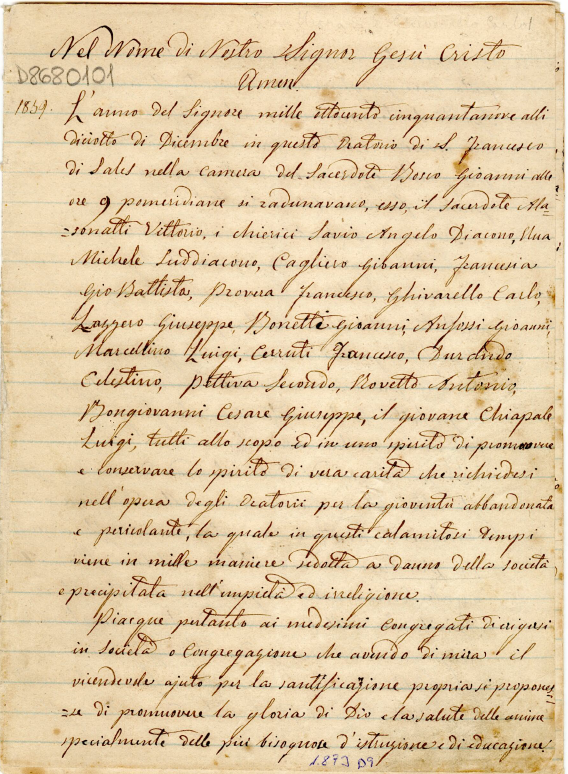 Nel Nome di Nostro Signor Gesù Cristo
D8680101
Amen.
1859. L'anno del Signore mille ottocento cinquantanove alli
diciotto di Dicembre in questo Oratorio di S. Francesco
di Sales nella camera del Sacerdote Bosco Gioanni alle
ore 9 pomeridiane si radunavano, esso, il Sacerdote Ala-
=sonatti Vittorio, i chierici Savio Angelo Diacono, Rua
Michele Suddiacono, Cagliero Gioanni, Francesia
Gio Battista, Provera Francesco, Ghivarello Carlo,
Lazzero Giuseppe, Bonetti Gioanni, Anfossi Gioanni,
Marcellino Luigi, Cerruti Francesco, Durando
Celestino, Pettiva Secondo, Rovetto Antonio,
Bongiovanni Cesare Giuseppe, il giovane Chiapale
Luigi, tutti allo scopo ed in uno spirito di promuovere
e conservare lo spirito di vera carità che richiedesi
nell'opera degli Oratorii per la gioventù abbandonata
e pericolante, la quale in questi calamitosi tempi
viene in mille maniere sedotta a danno della società
e precipitata nell'empietà ed irreligione.
Piacque pertanto ai medesimi congregati di erigersi
in società o Congregazione che avendo di mira il
vicendevole ajuto per la santificazione propria si propones
=se di promuovere la gloria di Dio e la salute delle anime
specialmente delle più bisognose d'istruzione e di educazione,